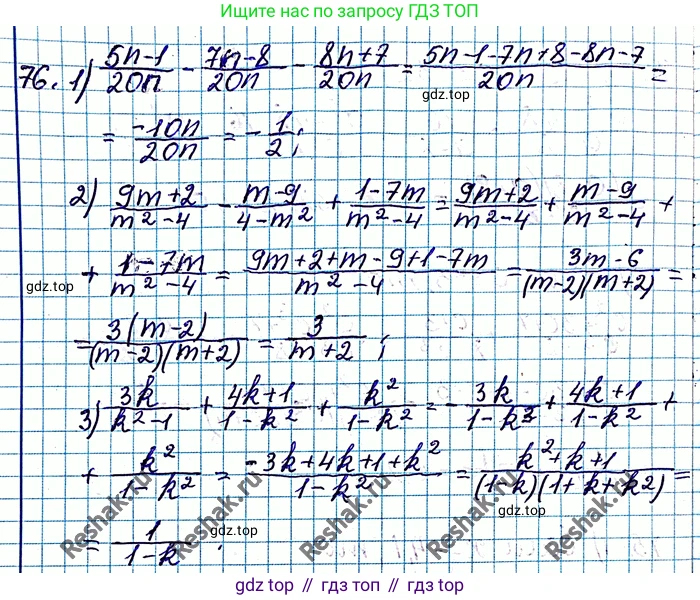 Ищите нас по запросу ГДЗ ТОП
76. 1) (5n-1)/(20n) - (7n-8)/(20n) - (8n+7)/(20n) = (5n-1-7n+8-8n-7)/(20n) =
gdz.top
= (-10n)/(20n) = -1/2;
2) (9m+2)/(m²-4) - (m-9)/(4-m²) + (1-7m)/(m²-4) = (9m+2)/(m²-4) + (m-9)/(m²-4) +
+ (1-7m)/(m²-4) = (9m+2+m-9+1-7m)/(m²-4) = (3m-6)/((m-2)(m+2)) =
gdz.top
= (3(m-2))/((m-2)(m+2)) = 3/(m+2);
3) (3k)/(k²-1) + (4k+1)/(1-k²) + (k²)/(1-k²) = -(3k)/(1-k³) + (4k+1)/(1-k²) +
+ (k²)/(1-k²) = (-3k+4k+1+k²)/(1-k²) = (k²+k+1)/((1-k)(1+k+k²)) =
gdz.top
= 1/(1-k).
Reshak.ru
Reshak.ru
Reshak.ru
Reshak.ru
gdz top // гдз топ // gdz.top